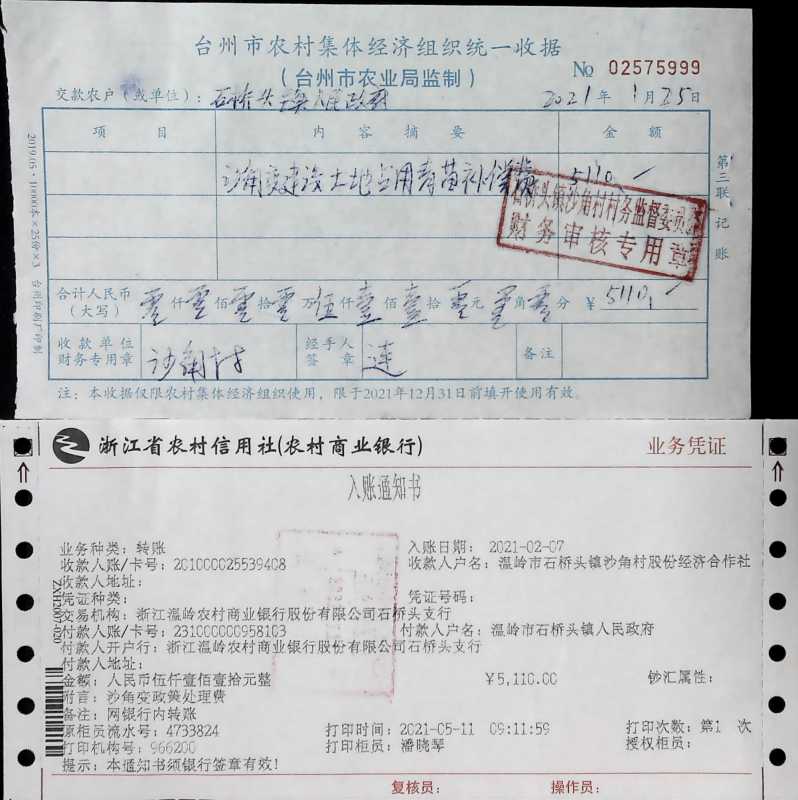 台州市农村集体经济组织统一收据
(台州市农业局监制)
No 02575999
交款农户(或单位): 石桥头镇人民政府 2021年1月25日
项目 内容摘要 金额
沙角变建设土地占用青苗补偿费 5110
石桥头镇沙角村村务监督委员会
财务审核专用章
合计人民币(大写) 零仟零佰零拾零万伍仟壹佰壹拾零元零角零分 ¥5110
收款单位财务专用章 沙角村 经手人签章 连 备注
注:本收据仅限农村集体经济组织使用,限于2021年12月31日前填开使用有效。
第三联 记账
2019.05·10000本×25份×3 台州印刷厂印制
浙江省农村信用社(农村商业银行) 业务凭证
入账通知书
业务种类:转账 入账日期: 2021-02-07
收款人账/卡号:201000025539408 收款人户名:温岭市石桥头镇沙角村股份经济合作社
收款人地址:
凭证种类: 凭证号码:
交易机构:浙江温岭农村商业银行股份有限公司石桥头支行
付款人账/卡号:231000000958103 付款人户名:温岭市石桥头镇人民政府
付款人开户行:浙江温岭农村商业银行股份有限公司石桥头支行
付款人地址:
金额:人民币伍仟壹佰壹拾元整 ¥5,110.00 钞汇属性:
附言:沙角变政策处理费
备注:网银行内转账
原柜员流水号:4733824 打印时间:2021-05-11 09:11:59 打印次数:第1 次
打印机构号:966200 打印柜员:潘晓琴 授权柜员:
提示:本通知书须银行签章有效!
复核员: 操作员: